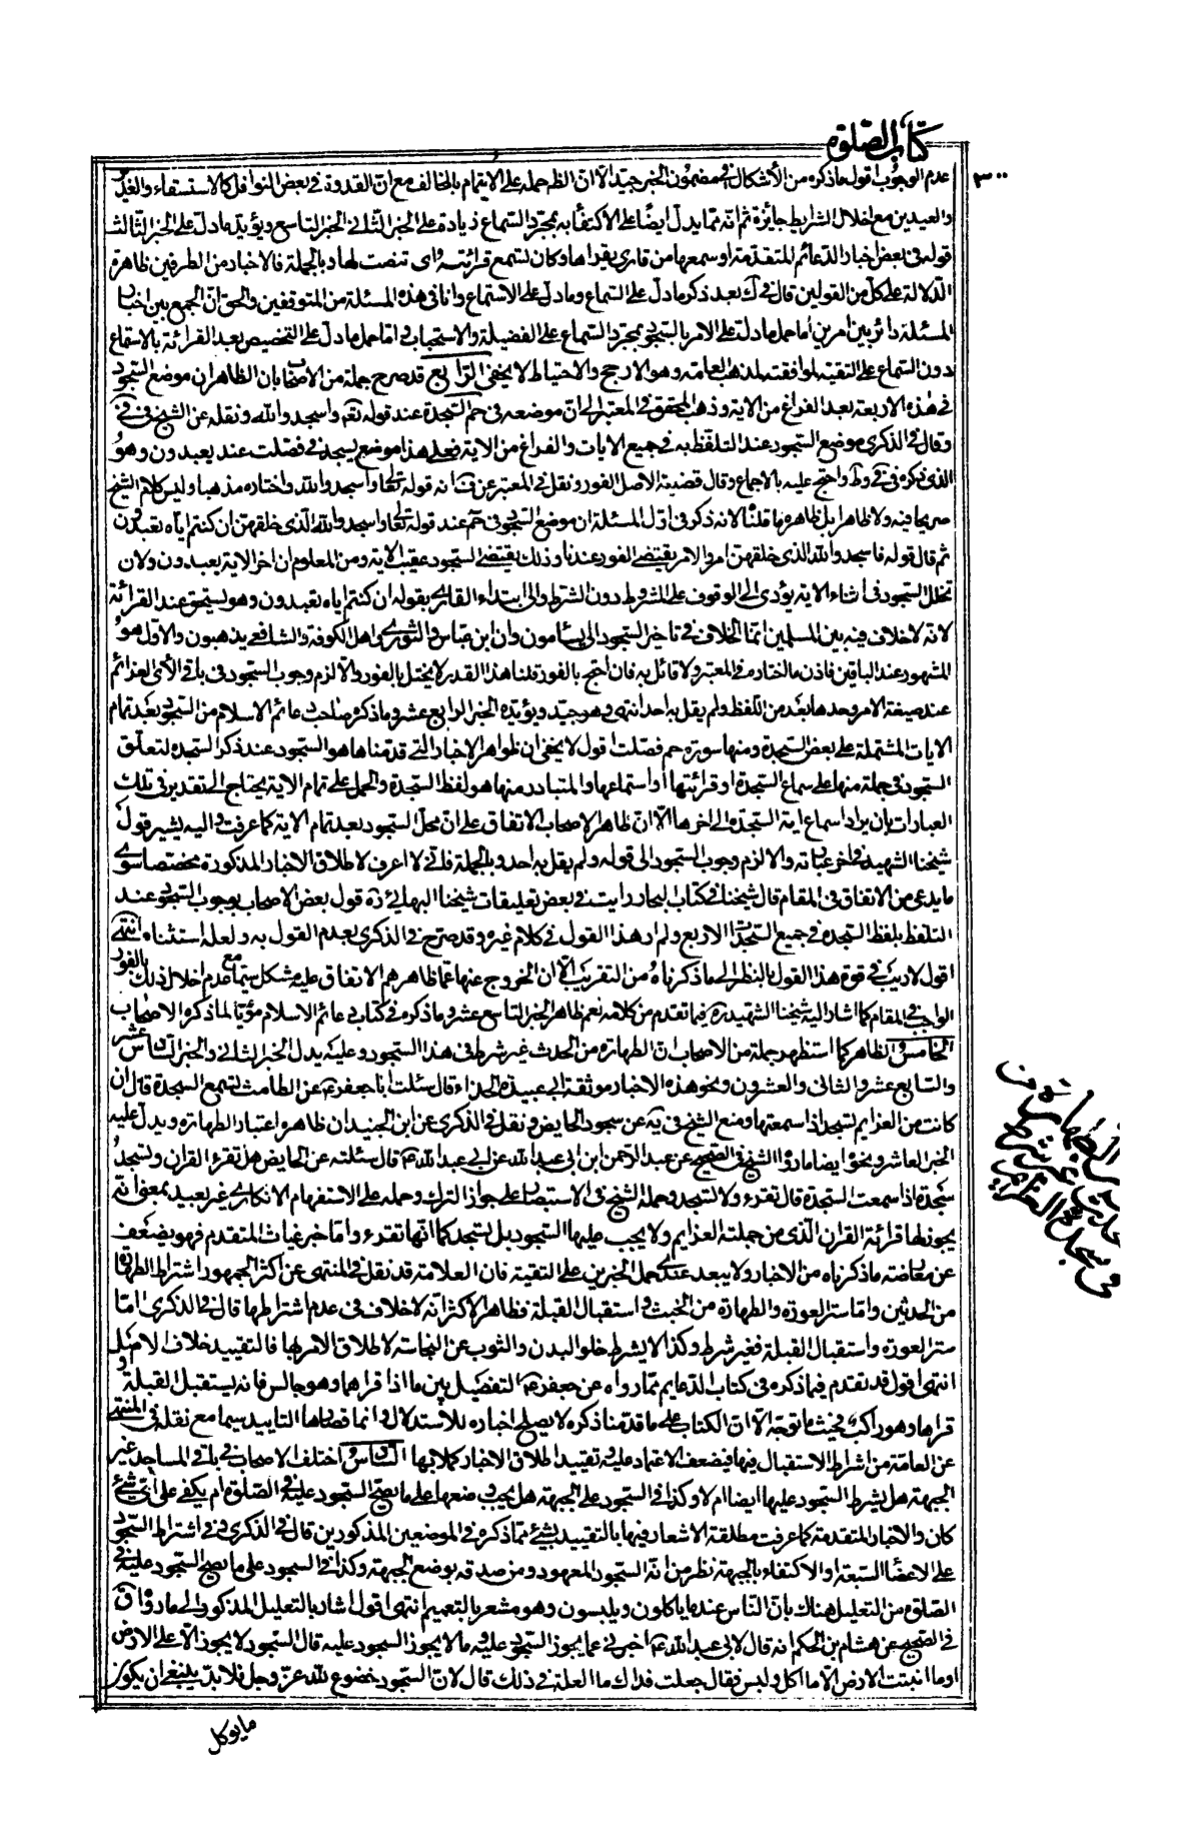 كتاب الصلوة
٣٠٠
عدم الوجوب اقول ما ذكره من الأشكال في مضمون الخبر جيد الا ان الظ حمله على الايتمام بالمخالف مع ان القدوة في بعض النوافل كالاستسقاء والغدير
والعيدين مع اختلال الشرايط جائزة ثم انه مما يدل ايضًا على الاكتفا به بمجرد السماع زيادة على الخبر الثاني الخبر التاسع ويؤيده ما دل على الخبر الثالث
قوله في بعض اخبار الدعائم المتقدمة او سمعها من قارئ يقراها وكان تسمع قرائته اى تنصت لها وبالجملة فالاخبار من الطرفين ظاهرة
الدلالة على كل من القولين قال في ك بعد ذكر ما دل على السماع وما دل على الاستماع وانا في هذه المسئلة من المتوقفين والحق ان الجمع بين اخبار
المسئلة دائر بين امرين اما حمل ما دل على الامر بالسجود بمجرد السماع على الفضيلة والاستحباب واما حمل ما دل على التخصيص بعد القرائة بالاستماع
دون السماع على التقية لموافقته لمذهب العامة وهو الارجح والاحتياط لا يخفى الرابع قد صرح جملة من الاصحاب بان الظاهر ان موضع السجود
في هذه الاربعة بعد الفراغ من الاية وذهب المحقق في المعتبر الى ان موضعه في حم السجدة عند قوله تعه واسجدوا لله ونقله عن الشيخ في ف
وقال في الذكرى موضع السجود عند التلفظ به في جميع الايات والفراغ من الاية فعلى هذا موضع يسجد في فصلت عند يعبدون وهو
الذي ذكره في ف وط واحتج عليه بالاجماع وقال قضية الاصل الفور ونقل في المعتبر عن ف انه قوله تعالى واسجدوا لله واختاره مذهبا وليس كلام الشيخ
صريحا فيه ولا ظاهرا بل ظاهره ما قلنا لانه ذكر في اول المسئلة ان موضع السجود في حم عند قوله تعالى واسجدوا لله الذى خلقهن ان كنتم اياه تعبدون
ثم قال قوله فاسجدوا لله الذى خلقهن امر والامر يقتضى الفور عندنا وذلك يقتضى السجود عقيب الاية ومن المعلوم ان اخر الاية يعبدون ولان
تخلل السجود في اثناء الاية يؤدى الى الوقوف على المشروط دون الشرط والى ابتداء القارى بقوله ان كنتم اياه تعبدون وهو يستهجن عند القرائة
لانه لا خلاف فيه بين المسلمين انما الخلاف في تاخير السجود الى يسامون وان ابن عباس والثورى واهل الكوفة والشافعى يذهبون والاول هو
المشهور عند الباقين فاذن ما اختاره في المعتبر ولا قائل به فان احتج بالفور قلنا هذا القدر لا يختل بالفور والا لزم وجوب السجود في باقي الآى العزائم
عند صيغة الامر وحدها بعد من اللفظ ولم يقل به احد انتهى وهو جيد ويؤيده الخبر الرابع عشر وما ذكره صاحب دعائم الاسلام من السجود بعد تمام
الايات المشتملة على بعض السجدة ومنها سورة حم فصلت اقول لا يخفى ان ظواهر الاخبار التي قدمناها هو السجود عند ذكر السجدة لتعلق
السجود في جملة منها على سماع السجدة او قرائتها او استماعها والمتبادر منها هو لفظ السجدة والحمل على تمام الاية يحتاج الى تقدير في تلك
العبارات بان يراد سماع اية السجدة الى اخرها الا ان ظاهر الاصحاب الاتفاق على ان محل السجود بعد تمام الاية كما عرفت واليه يشير قول
شيخنا الشهيد في اخر عبارته والا لزم وجوب السجود الى قوله ولم يقل به احد وبالجملة فانى لا اعرف لاطلاق الاخبار المذكورة مخصصا سوى
ما يدعى من الاتفاق في المقام قال شيخنا في كتاب البحار رايت في بعض تعليقات شيخنا البهائى ره قول بعض الاصحاب بوجوب السجود عند
التلفظ بلفظ السجدة في جميع السجدات الاربع ولم ار هذا القول في كلام غيره وقد صرح في الذكرى بعدم القول به ولعله استثناه انتهى
اقول لا ريب في قوة هذا القول بالنظر الى ما ذكرناه من التقريب الا ان الخروج عنها عما ظاهرهم الاتفاق عليه مشكل سيما مع عدم اخلال ذلك بالفور
الواجب في المقام كما اشار اليه شيخنا الشهيد ره فيما تقدم من كلامه نعم ظاهر الخبر التاسع عشر وما ذكره في كتاب دعائم الاسلام مؤيدا لما ذكره الاصحاب
الخامس الظاهر كما استظهر جملة من الاصحاب ان الطهارة من الحدث غير شرط في هذا السجود وعليه يدل الخبر الثاني والخبر السادس عشر
والسابع عشر والثاني والعشرون ونحو هذه الاخبار موثقة ابى عبيدة الحذاء قال سئلت ابا جعفر ع عن الطامث تسمع السجدة قال ان
كانت من العزايم تسجد اذا سمعتها ومنع الشيخ في يه عن سجود الحايض ونقل في الذكرى عن ابن الجنيد ان ظاهره اعتبار الطهارة ويدل عليه
الخبر العاشر ونحوه ايضا ما رواه الشيخ في الصحيح عن عبد الرحمن ابن ابى عبد الله عن ابى عبد الله ع قال سئلته عن الحايض هل تقرء القران وتسجد
سجدة اذا سمعت السجدة قال تقرء ولا تسجد وحمله الشيخ في الاستبصار على جواز الترك وحمله على الاستفهام الانكارى غير بعيد بمعنى انه
يجوز لها قرائة القران الذى من جملته العزايم ولا يجب عليها السجود بل تسجد كما انها تقرء واما خبر غياث المتقدم فهو يضعف
عن معارضة ما ذكرناه من الاخبار ولا يبعد عندى حمل الخبرين على التقية فان العلامة قد نقل في المنتهى عن اكثر الجمهور اشتراط الطهارة
من الحدثين واما ستر العورة والطهارة من الخبث واستقبال القبلة فظاهر الاكثر انه لا خلاف في عدم اشتراطها قال في الذكرى اما
ستر العورة واستقبال القبلة فغير شرط وكذا لا يشترط خلو البدن والثوب عن النجاسة لاطلاق الامر بها فالتقييد خلاف الاصل
انتهى اقول قد تقدم فيما ذكره في كتاب الدعايم مما رواه عن جعفر ع التفصيل بين ما اذا قراها وهو جالس فانه يستقبل القبلة و
قراها وهو راكب فحيث ما توجه الا ان الكتاب على ما قدمنا ذكره لا يصلح اخباره للاستدلال وانما قصاراها التاييد سيما مع نقله في المنتهى
عن العامة من اشتراط الاستقبال فيها فيضعف الاعتماد عليه وتقييد اطلاق الاخبار كملا بها السادس اختلف الاصحاب في باقي المساجد غير
الجبهة هل يشترط السجود عليها ايضا ام لا وكذا في السجود على الجبهة هل يجب وضعها على ما يصح السجود عليه في الصلوة ام يكفى على اى شئ
كان والاخبار المتقدمة كما عرفت مطلقة لا اشعار فيها بالتقييد بشئ مما ذكره في الموضعين المذكورين قال في الذكرى وفي اشتراط السجود
على الاعضاء السبعة او الاكتفاء بالجبهة نظر من انه السجود المعهود ومن صدقه بوضع الجبهة وكذا في السجود على ما يصح السجود عليه في
الصلوة من التعليل هناك بان الناس عند ما ياكلون ويلبسون وهو مشعر بالتعميم انتهى اقول اشار بالتعليل المذكور الى ما رواه ق
في الصحيح عن هشام بن الحكم انه قال لابى عبد الله ع اخبرنى عما يجوز السجود عليه وما لا يجوز السجود عليه قال السجود لا يجوز الا على الارض
او ما انبتت الارض الا ما اكل ولبس فقال جعلت فداك ما العلة في ذلك قال لان السجود خضوع لله عز وجل فلا بد ينبغى ان يكون
ما يوكل
الطهارة من
الحدث غير شرط
في سجدة العزائم